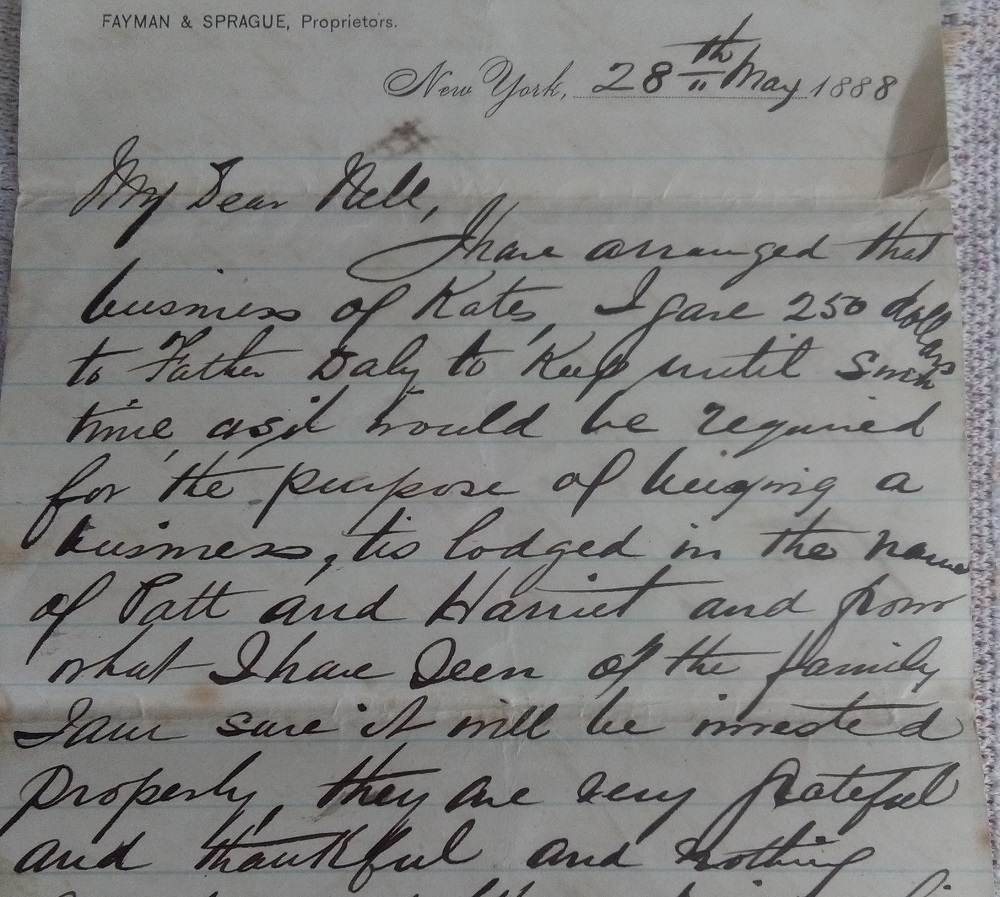 FAYMAN & SPRAGUE, Proprietors.
New York, 28th May 1888
My Dear Nell,
I have arranged that
business of Kates, I gave 250 dollars
to Father Daly to Keep until such
time, as it would be required
for the purpose of buying a
business, tis lodged in the name
of Patt and Harriet and from
what I have seen of the family
I am sure it will be invested
properly, they are very grateful
and thankful and nothing